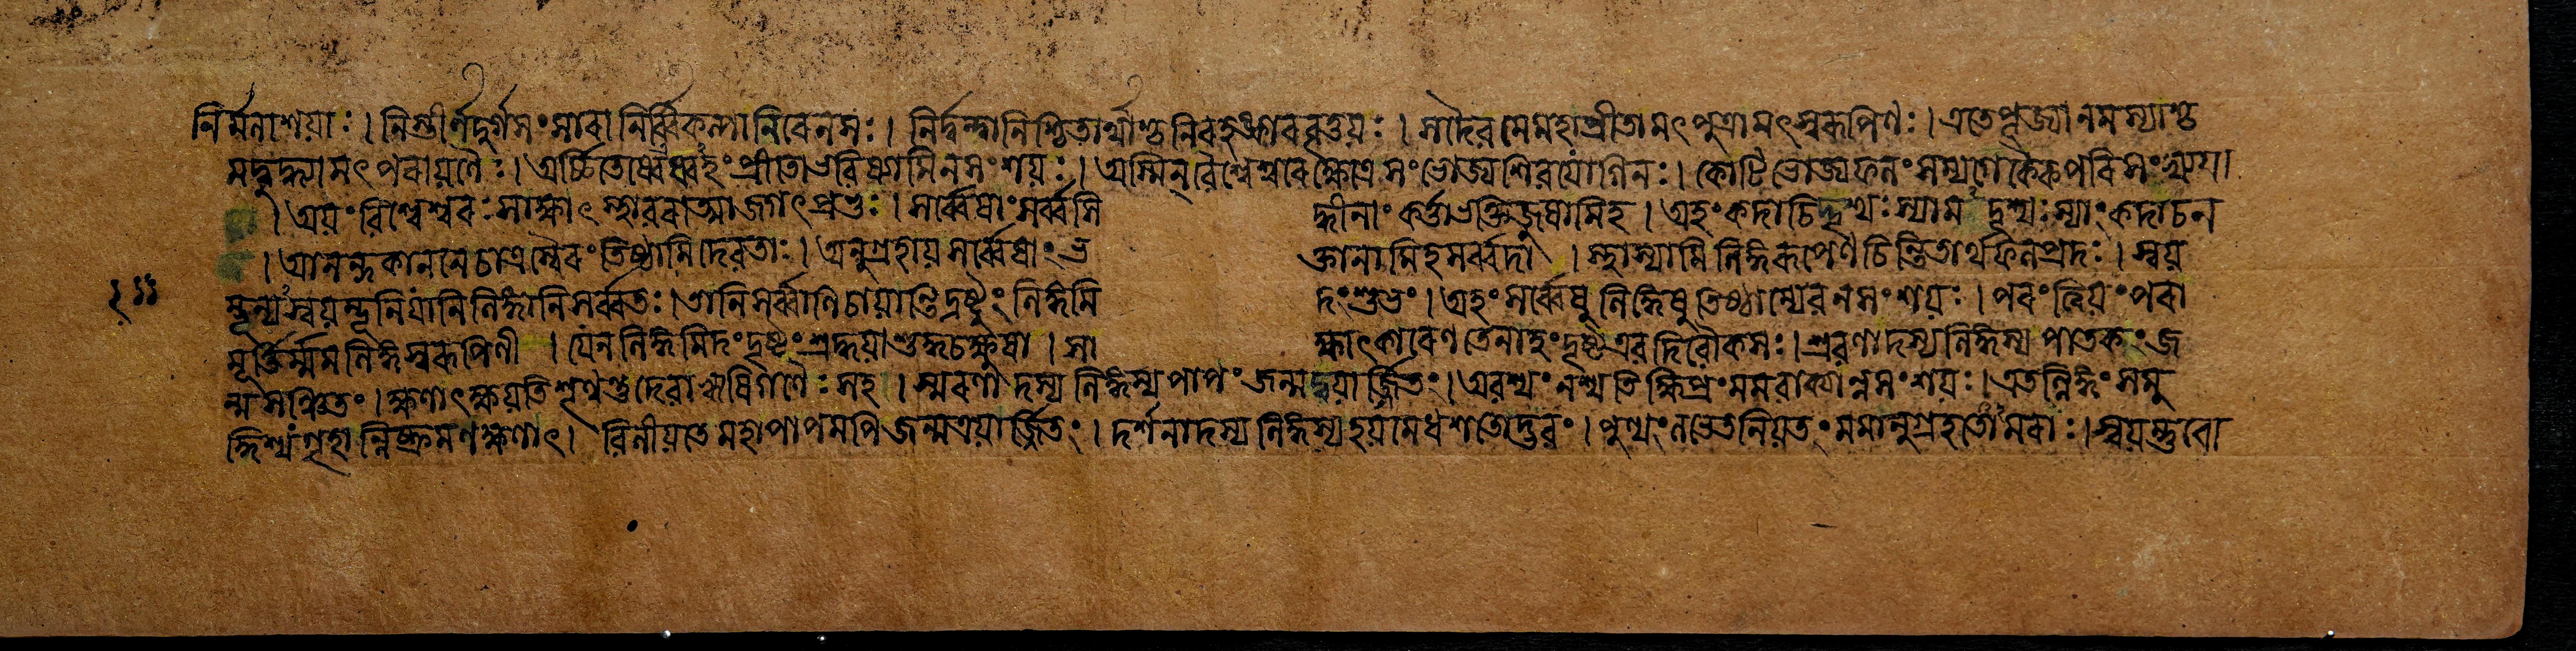 নির্ম্মলাশয়াঃ। নিস্তীর্ণদুর্গসংসারা নির্ব্বিকল্পা নিরেনসঃ। নির্দ্বন্দ্বা নিশ্চিতার্থাশ্চ নিরহঙ্কারবৃত্তয়ঃ। সদৈব মে মহাপ্রীতা মৎপুত্রা মৎস্বরূপিণঃ। এতে পূজ্যা নমস্যাশ্চ
মদ্বুদ্ধ্যা মৎপরায়ণৈঃ। অর্চ্চিতেষ্বেষ্বহং প্রীতো ভবিষ্যামি ন সংশয়ঃ। অস্মিন্ বৈশ্বেশ্বরে ক্ষেত্রে সংভোজ্যা শিবযোগিনঃ। কোটিভোজ্যফলং সম্যগেকৈকপরিসংখ্যয়া
। অয়ং বিশ্বেশ্বরঃ সাক্ষাৎ স্থাবরাত্মা জগৎপ্রভুঃ। সর্ব্বেষাং সর্ব্বসি দ্ধীনাং কর্ত্তা ভক্তিজুষামিহ। অহং কদাচিদ্দৃশ্যঃ স্যামদৃশ্যঃ স্যাং কদাচন
। আনন্দকাননে চাত্র স্বৈরং তিষ্ঠামি দেবতাঃ। অনুগ্রহায় সর্ব্বেষাং ভ ক্তানামিহ সর্ব্বদা। স্থাস্যামি লিঙ্গরূপেণ চিন্তিতার্থফলপ্রদঃ। স্বয়
ম্ভূন্যস্বয়ম্ভূনি যানি লিঙ্গানি সর্ব্বতঃ। তানি সর্ব্বাণি চায়ান্তি দ্রষ্টুং লিঙ্গমি দং শুভং। অহং সর্ব্বেষু লিঙ্গেষু তিষ্ঠাম্যেব ন সংশয়ঃ। পরং ত্বিয়ং পরা
মূর্ত্তির্ম্মম লিঙ্গস্বরূপিণী। যেন লিঙ্গমিদং দৃষ্টং শ্রদ্ধয়া শুদ্ধচক্ষুষা। সা ক্ষাৎকারেণ তেনাহং দৃষ্ট এব দিবৌকসঃ। শ্রবণাদস্য লিঙ্গস্য পাতকং জ
ন্মসঞ্চিতং। ক্ষণাৎ ক্ষয়তি শৃণ্বন্তু দেবা ঋষিগণৈঃ সহ। স্মরণাদস্য লিঙ্গস্য পাপং জন্মদ্বয়ার্জ্জিতং। অবশ্যং নশ্যতি ক্ষিপ্রং মম বাক্যান্ন সংশয়ঃ। এতল্লিঙ্গং সমু
দ্দিশ্য গৃহান্নিষ্ক্রমণক্ষণাৎ। বিলীয়তে মহাপাপমপি জন্মত্রয়ার্জ্জিতং। দর্শনাদস্য লিঙ্গস্য হয়মেধশতোদ্ভবং। পুণ্যং লভেত নিয়তং মমানুগ্রহতোঽমরাঃ। স্বয়ম্ভুবো